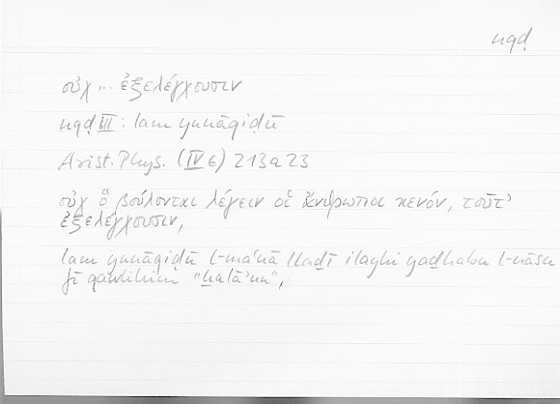 nqḍ
οὐχ ... ἐξελέγχουσιν
nqḍ III : lam yunāqiḍū
Arist. Phys. (IV 6) 213 a 23
οὐχ ὃ βούλονται λέγειν οἱ ἄνθρωποι κενόν, τοῦτ'
ἐξελέγχουσιν,
lam yunāqiḍū l-maʿnā lladī ilayhi yaḏhabu l-nāsu
fī qawlihim "ḫalāʾun",